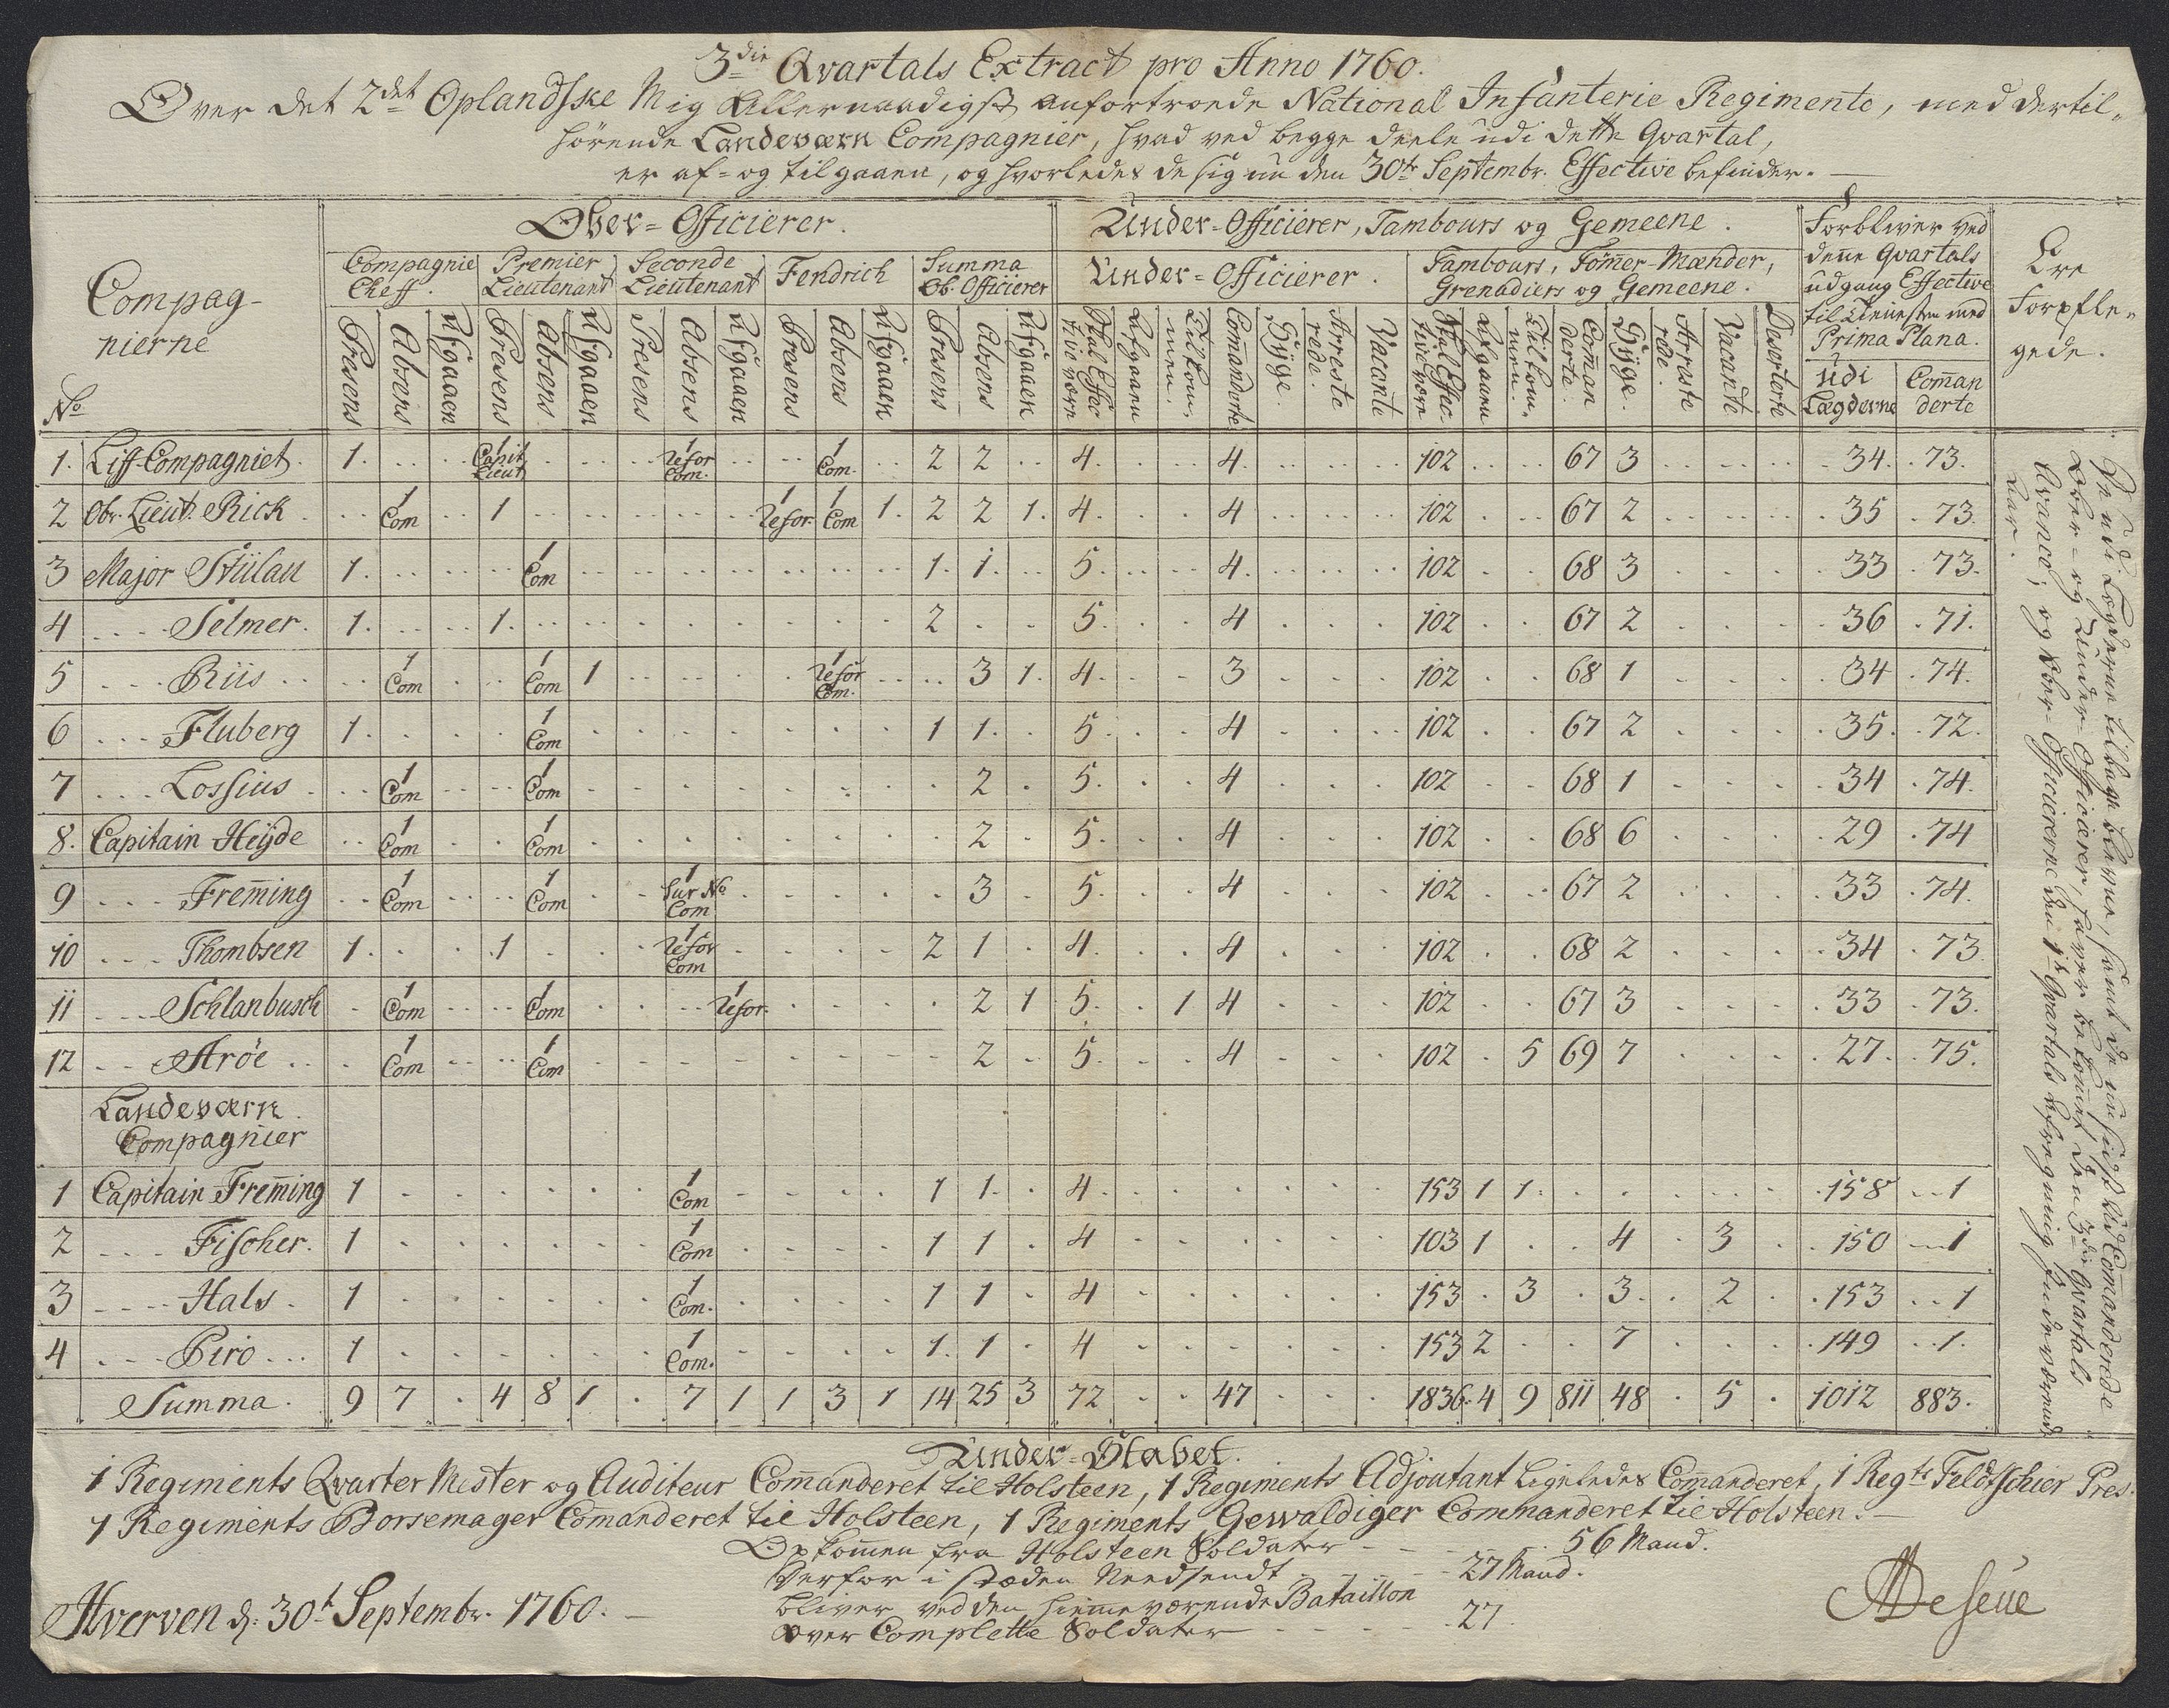 3die Qvartals Extract pro Anno 1760.
Over det 2det Oplandske Mig Allernaadigst anfortroede National Infanterie Regimente, med dertil-
hørende Landeværn Compagnier, hvad ved begge deele udi dette Qvartal,
er af- og tilgaaen, og hvorledes de sig nu den 30te Septembr. Effective befinder.
Compag-
nierne
No
Ober-Officierer.
Compagnie Cheff.
Premier Lieutenant
Seconde Lieutenant
Fendrich
Summa Ob. Officierer
Presens Absens Afgaaen Presens Absens Afgaaen Presens Absens Afgaaen Presens Absens Afgaaen Presens Absens Afgaaen
Under-Officierer, Tambours og Gemeene.
Under-Officierer.
Tambours, Tømer-Mænder,
Grenadiers og Gemeene.
Skal Effective være Afgaaen Tilkommen Comanderte Syge. Arresterede. Vacante
Skal Effective være Afgaaen Tilkommen. Comanderte. Syge. Arresterede. Vacante Deserterte
Forbliver ved
dene Qvartals
udgang Effective
til Tieneste med
Prima Plana.
Udi Lægderne
Comanderte
Ere
Forpfle-
gede.
1. Liff-Compagniet. 1. 1 Capit Lieut 1 Refor Com. 1 Com. 2 2 4. 4. 102 67 3 34. 73.
2 Obr. Lieut. Rick 1 Com 1 1 Refor. 1 Com 1. 2 2 1. 4. 4 102 67 2 35 73.
3 Major Stülau 1. 1 Com 1. 1. 5. 4. 102 68 3 33 73.
4 Selmer. 1. 1. 2 5. 4 102 67 2 36 71.
5 Riis 1 Com 1 Com 1 1 Refor Com. 3 1. 4. 3 102 68 1 34 74.
6 Fluberg 1. 1 Com 1 1. 5. 4 102 67 2 35. 72.
7 Lossius 1 Com 1 Com 2 5. 4 102 68 1 34 74.
8. Capitain Heÿde 1 Com 1 Com 2 5. 4 102 68 6 29 74
9 Freming 1 Com 1 Com 1 Sur No Com 3 5. 4 102 67 2 33 74.
10 Thombsen 1. 1 1 Refor Com 2 1 4. 4 102 68 2 34 73.
11 Schlanbusch 1 Com 1 Com 1 Refor. 2 1 5. 1 4 102 67 3 33 73.
12 Arøe 1 Com 1 Com 2 5. 4 102 5 69 7 27. 75.
Landeværn.
Compagnier
1 Capitain Freming 1 1 Com 1 1. 4. 153 1 1. 158 1
2 Fischer. 1 1 Com 1 1 4 103 1 4 3 150 1
3 Hals 1 1 Com. 1 1 4 153 3 3. 2 153 1
4 Biro 1 1 Com. 1. 1 4 153 2 7 149 1.
Summa. 9 7 4 8 1 7 1 1 3 1 14 25 3 72 47 1836. 4 9 811 48 5 1012 883.
De udi Lægderne tilbage blevne, samt de nu sidst til Comanderede
Ober- og Under-Officierer, haver bekomet den 3die Qvartals
Avance; og Ober-Officiererne den 1te Qvartals
Under-Stabet.
1 Regiments Qvarter Mester og Auditeur Comanderet til Holsteen, 1 Regiments Adjoutant ligeledes Comanderet, 1 Regts Feldtschier Pres.
1 Regiments Borsemager Comanderet til Holsteen, 1 Regiments Gewaldiger Commanderet til Holsteen.
Opkomen fra Holsteen Soldater 56 Mand.
Derfor i stæden Needsendt 27 Mand.
bliver ved den hiemeværende Bataillon
over Complette Soldater 27
Hverven d: 30t Septembr. 1760.
de Seue